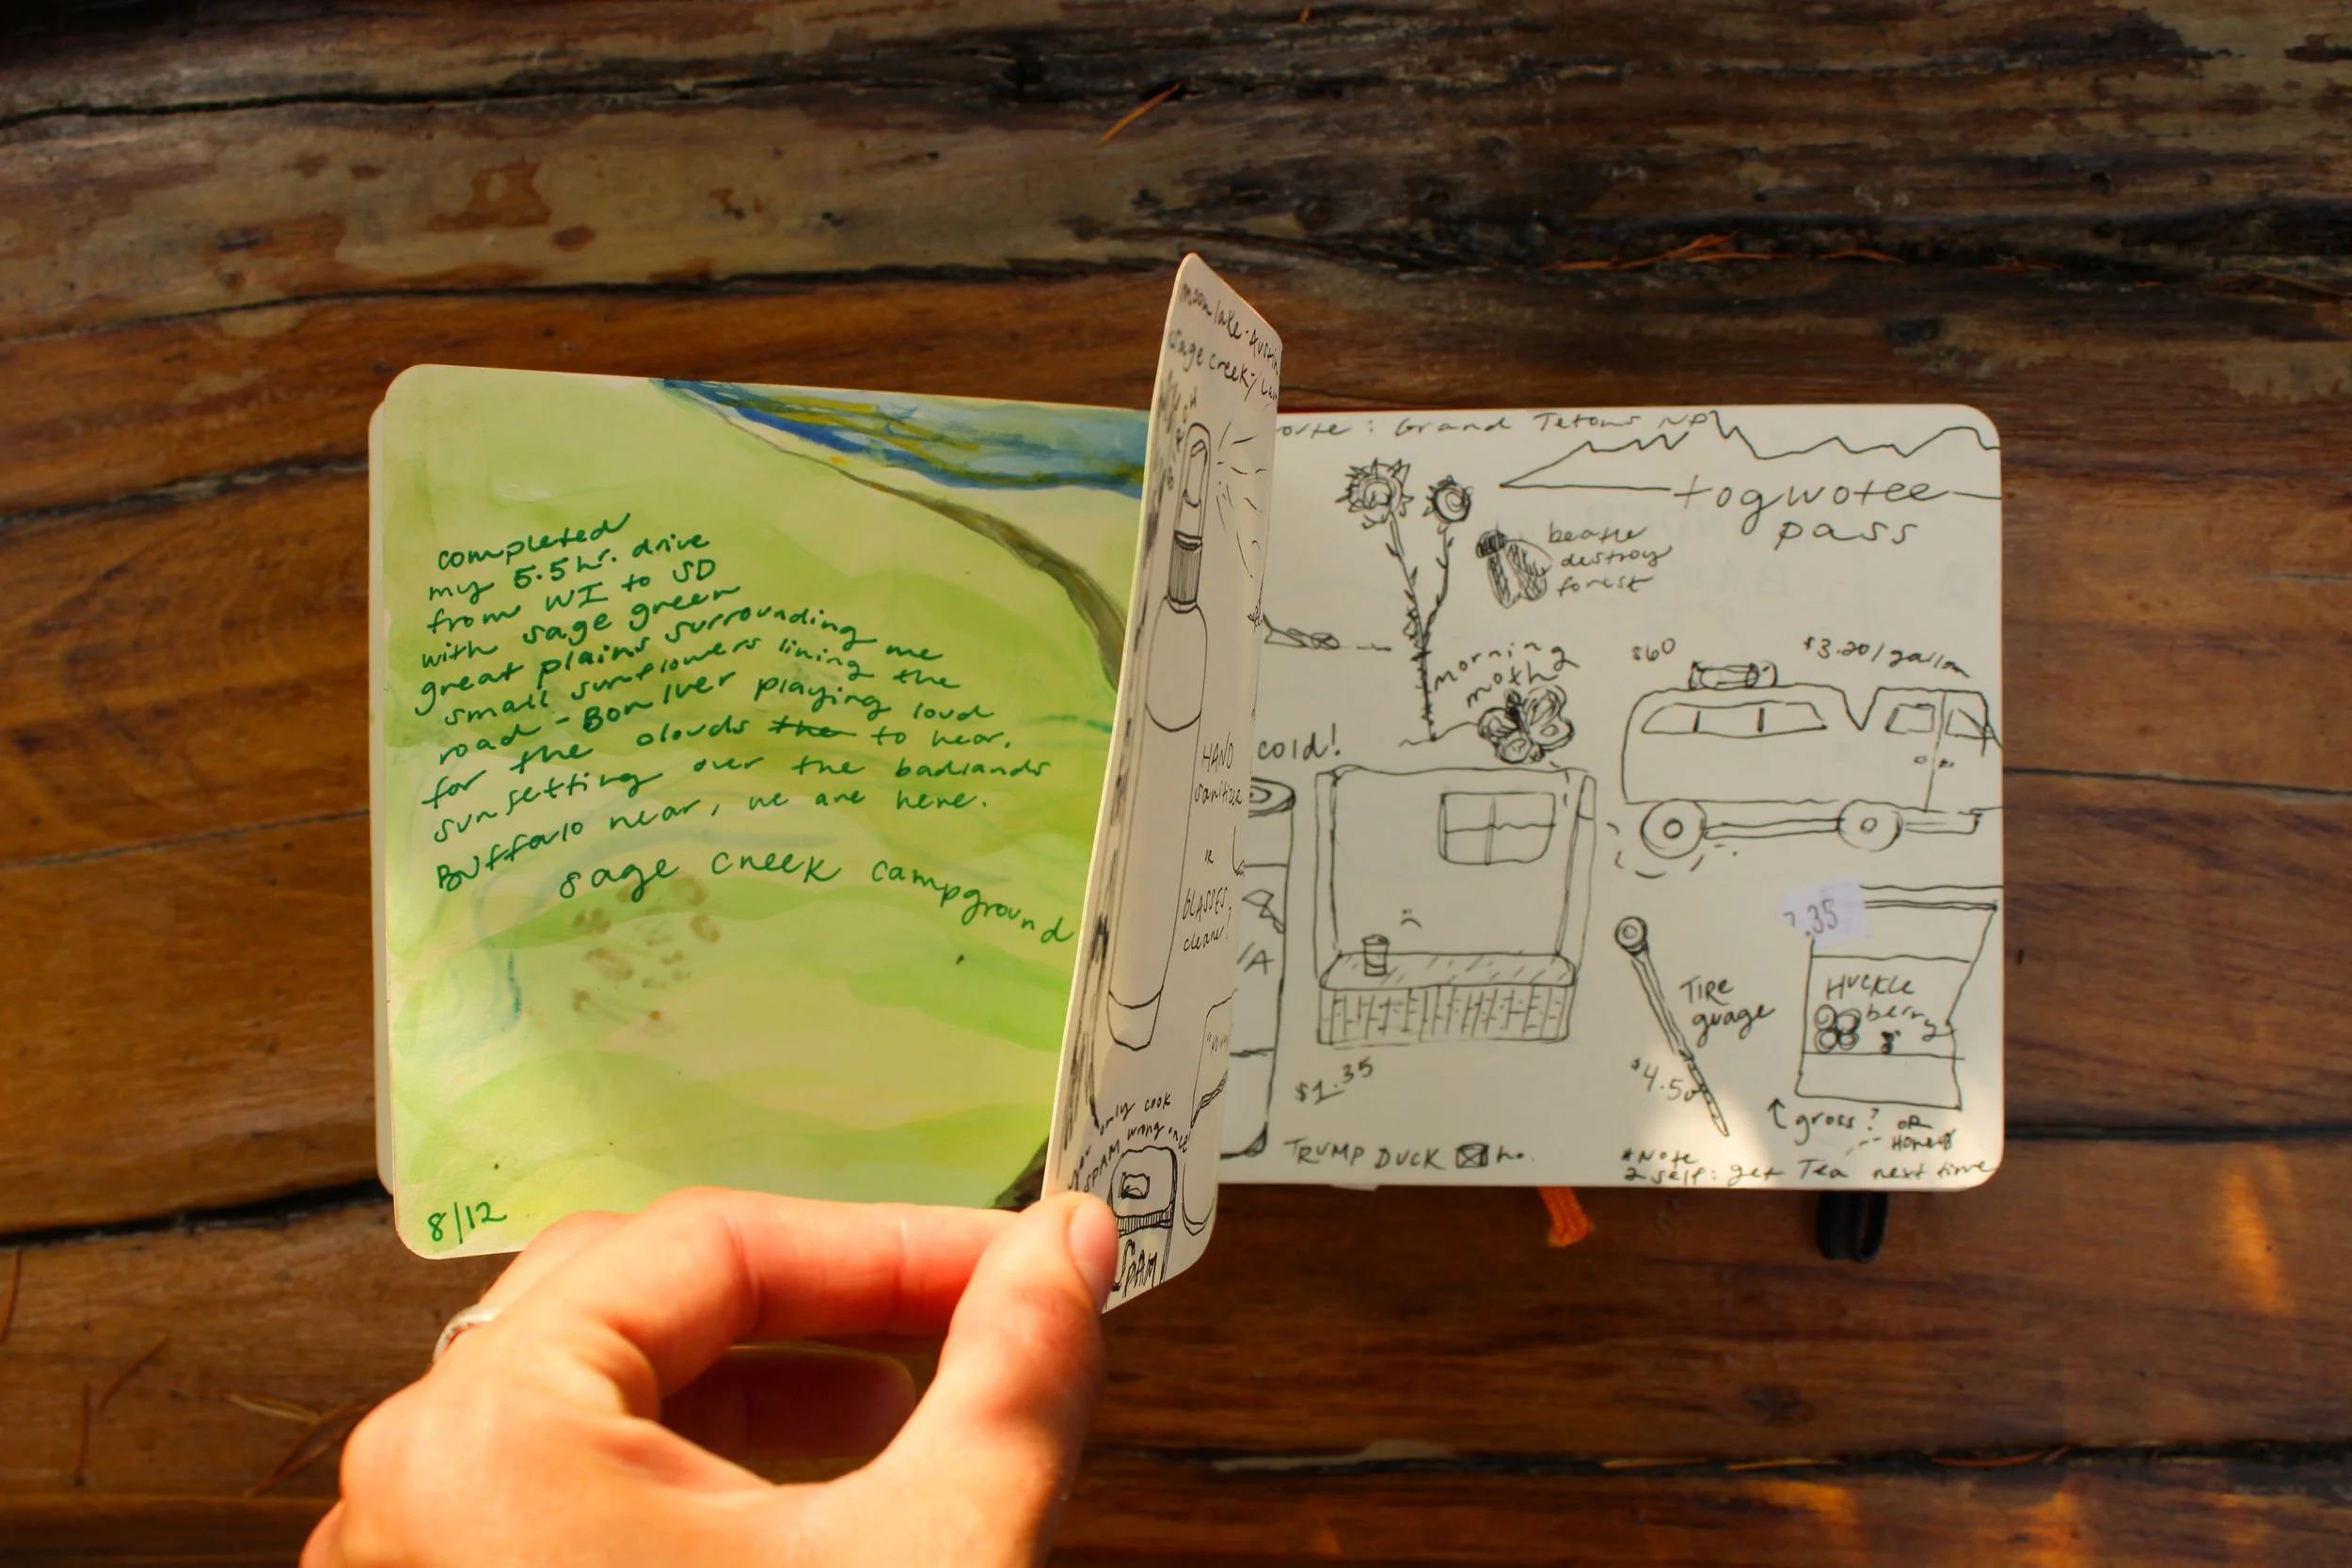 completed
my 5.5 hr. drive
from WI to SD
with sage green
great plains surrounding me
small sunflowers lining the
road - Bon Iver playing loud
for the clouds the to hear.
sunsetting over the badlands
Buffalo near, we are here.
sage creek campground
8/12
moon lake - Austin
sage creek /
HAND
sanitizer
GLASSES
cleaner?
only cook
SPAM wrong once
SPAM
: Grand Tetons NP
togwotee
pass
beatle
destroy
forest
morning
moth
$60
$3.20/gallon
cold!
.35
TIRE
guage
$4.50
HUCKLE
berry
$1.35
gross? OR
TRUMP DUCK
*Note
2 self: get Tea next time